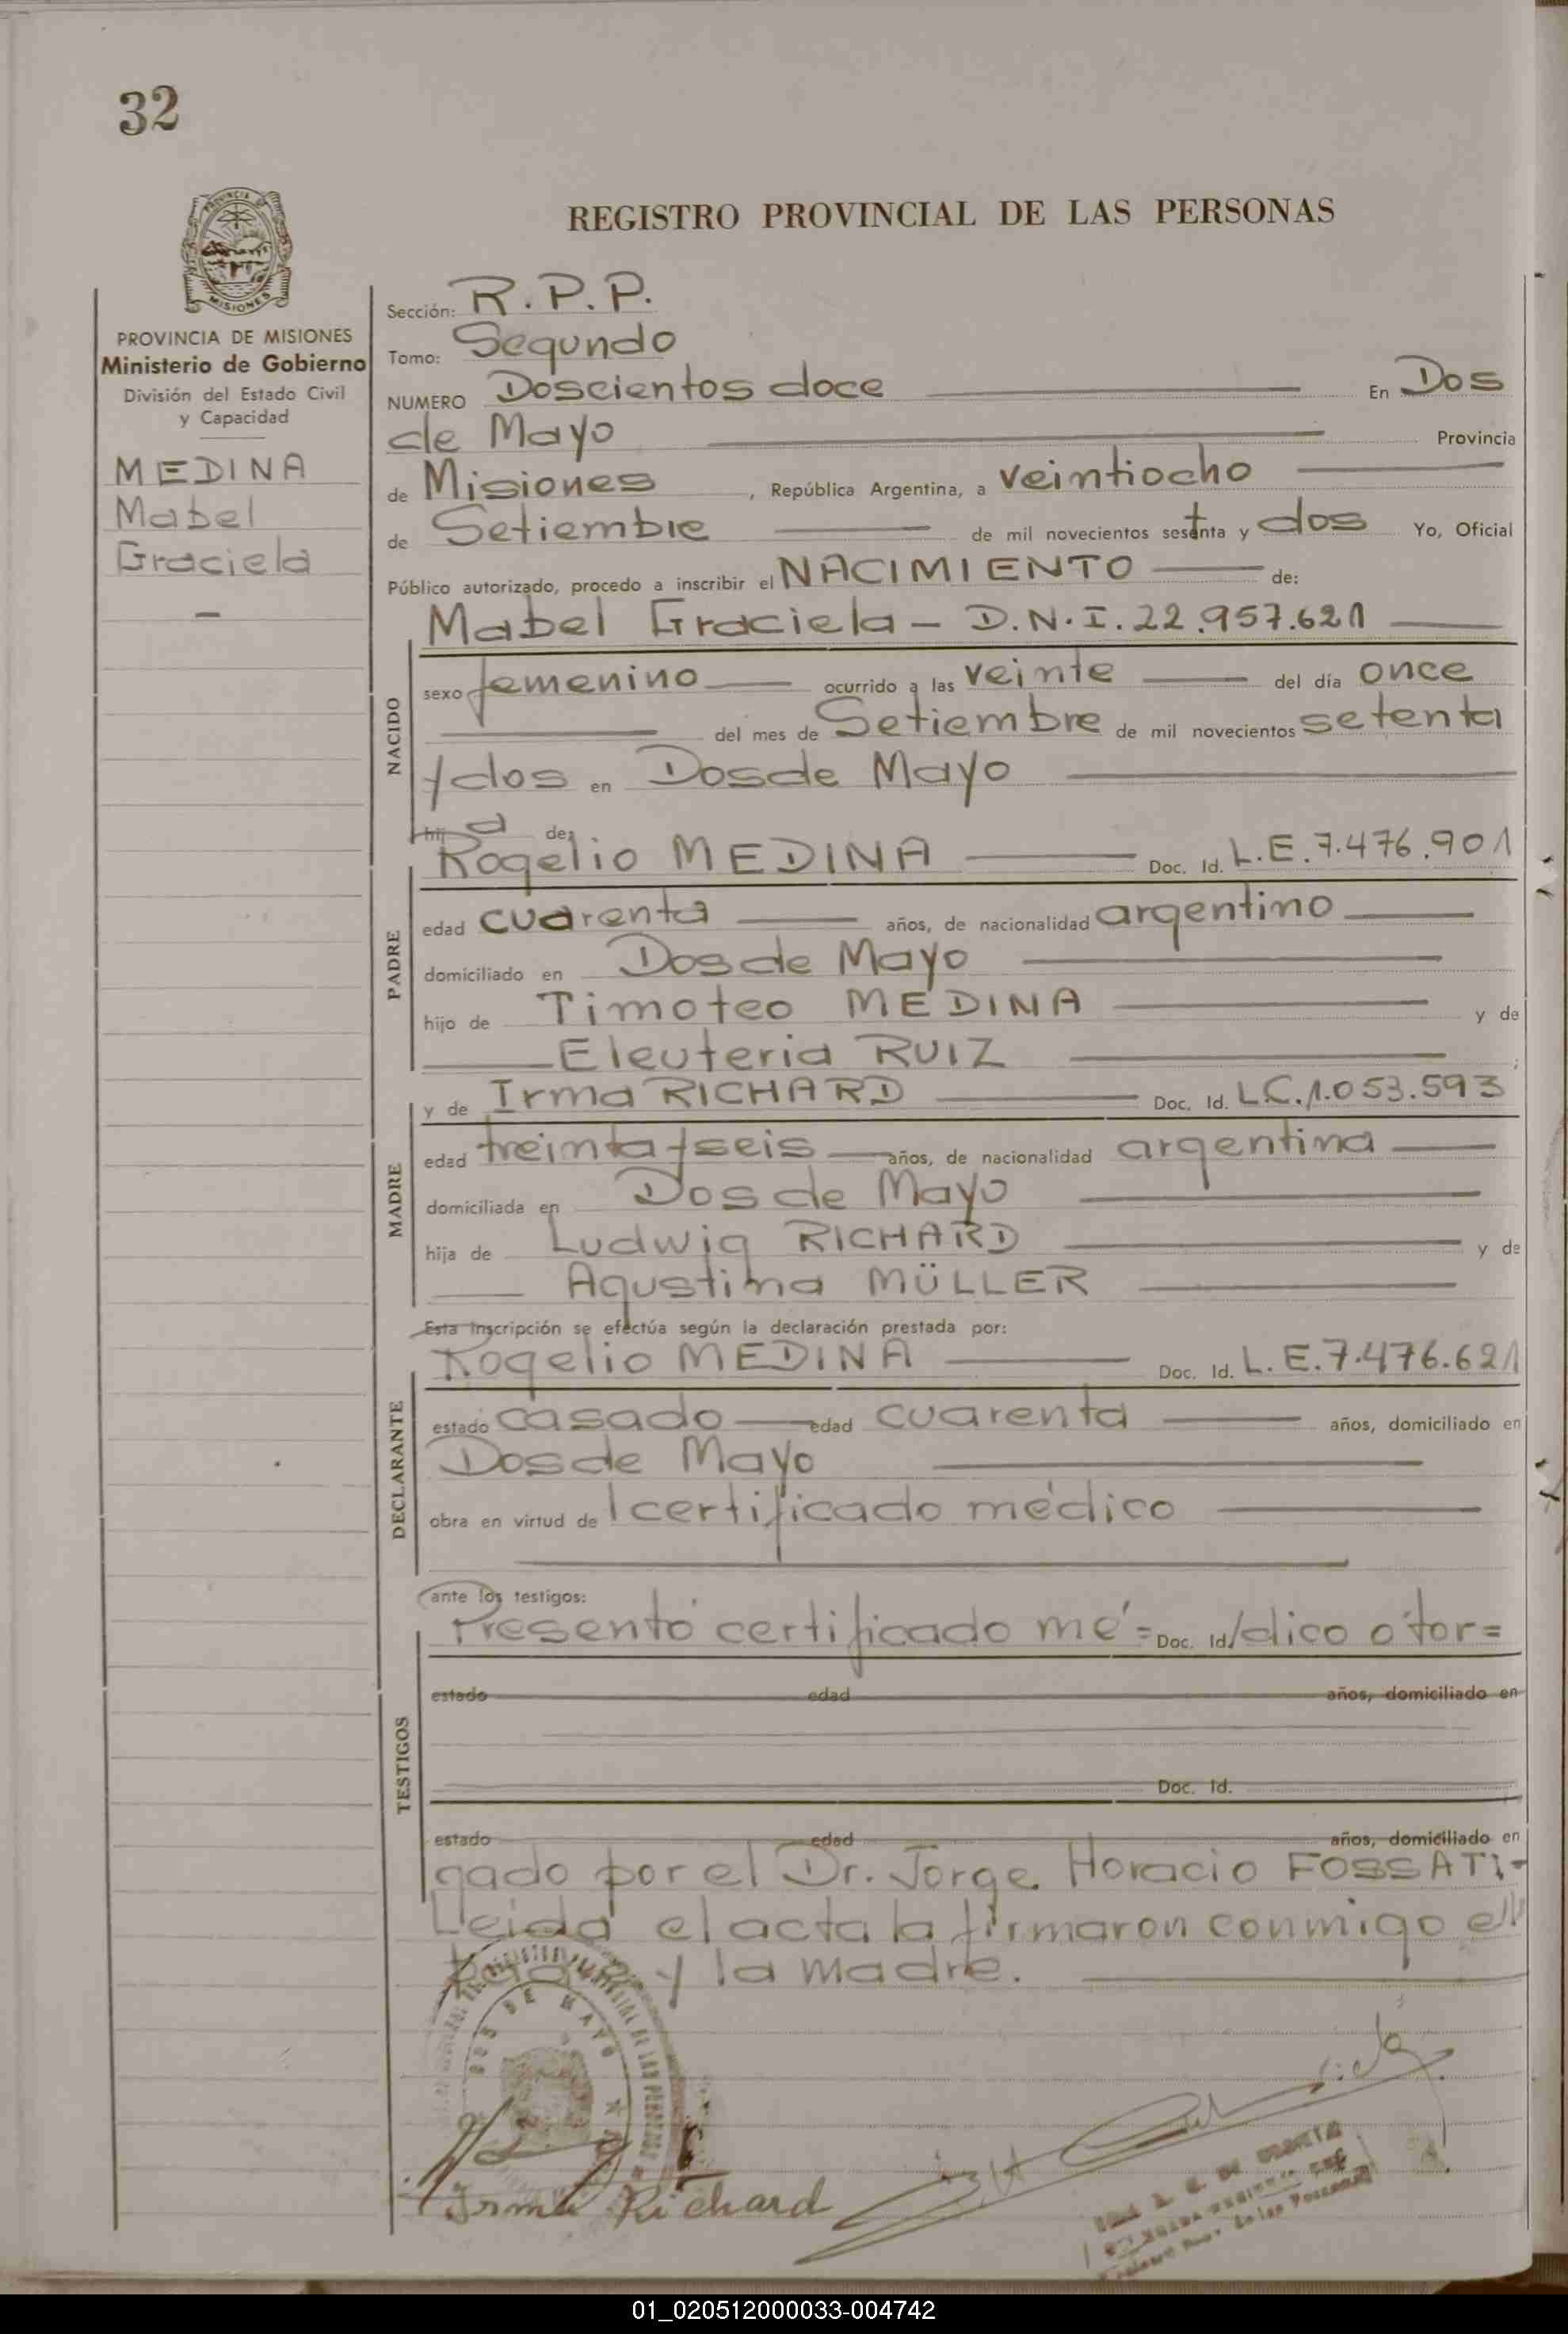 32
REGISTRO PROVINCIAL DE LAS PERSONAS
PROVINCIA DE MISIONES
Ministerio de Gobierno
División del Estado Civil
y Capacidad
MEDINA
Mabel
Graciela
Sección: R.P.P.
Tomo: Segundo
NUMERO Doscientos doce En Dos
de Mayo Provincia
de Misiones, República Argentina, a veintiocho
de Setiembre de mil novecientos setenta y dos Yo, Oficial
Público autorizado, procedo a inscribir el NACIMIENTO de:
Mabel Graciela - D.N.I. 22.957.621
NACIDO
sexo femenino ocurrido a las veinte del día once
del mes de Setiembre de mil novecientos setenta
y dos en Dos de Mayo
hija de
Rogelio MEDINA Doc. Id. L.E. 7.476.901
PADRE
edad cuarenta años, de nacionalidad argentino
domiciliado en Dos de Mayo
hijo de Timoteo MEDINA y de
Eleuteria RUIZ
y de Irma RICHARD Doc. Id. L.C. 1.053.593
MADRE
edad treinta y seis años, de nacionalidad argentina
domiciliada en Dos de Mayo
hija de Ludwig RICHARD y de
Agustina MÜLLER
Esta inscripción se efectúa según la declaración prestada por:
Rogelio MEDINA Doc. Id. L.E. 7.476.621
DECLARANTE
estado casado edad cuarenta años, domiciliado en
Dos de Mayo
obra en virtud de l certificado médico
ante los testigos:
Presentó certificado mé= Doc. Id. /dico otor=
TESTIGOS
estado edad años, domiciliado en
Doc. Id.
estado edad años, domiciliado en
gado por el Dr. Jorge Horacio FOSSATI-
Leida el acta la firmaron conmigo el
padre y la madre.
DOS DE MAYO
Irma Richard
01_020512000033-004742